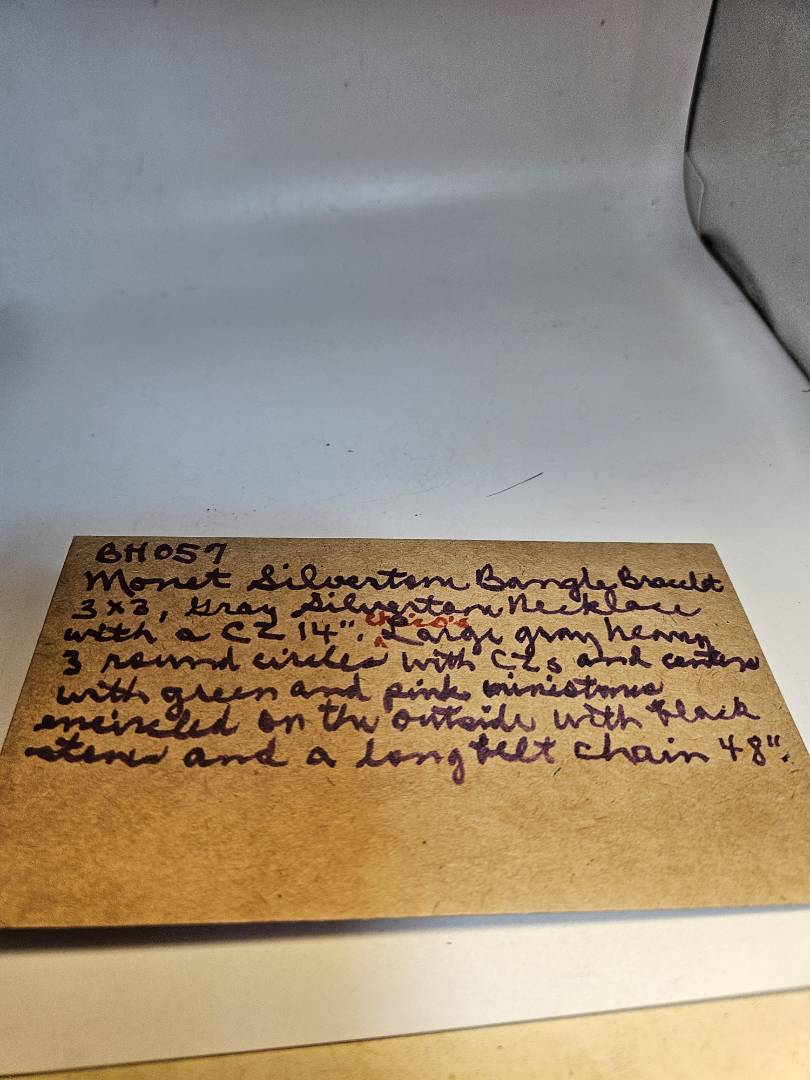 BH057
Monet Silvertone Bangle Bracelet
3x3, Gray Silvertone Necklace
with a CZ 14". Large gray heavy
3 round circles with CZs and centers
with green and pink ministones
encircled on the outside with black
stones and a long belt chain 48".